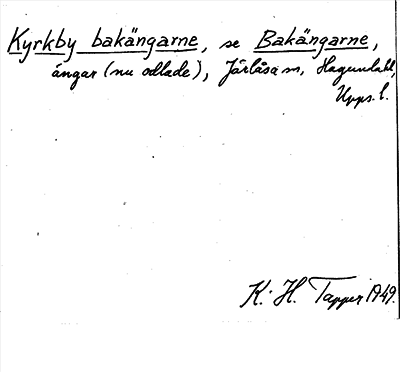 Kyrkby bakängarne, se Bakängarne,
ängar (nu odlade), Järlåsa sn, Hagundahd,
Upps. l.
K. H. Tapper 1949.